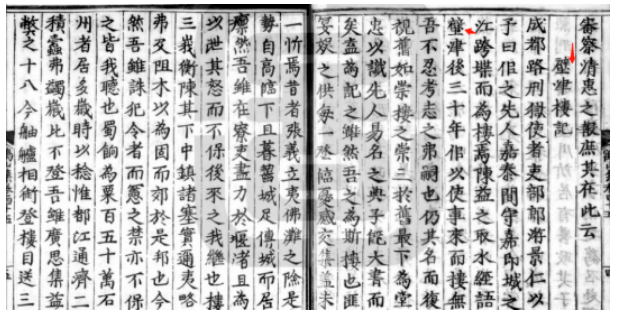 審察清惠之庶其在此云
璧津樓記
成都路刑獄使者吏部郎將景仁以
予曰作之先人嘉泰間守嘉城之
江跨堞而為樓焉陳益之取水經語
璧津後三十年作以使事來而樓無
吾不忍考志之弗祠也仍其名而復
視舊如崇樓之崇三於舊最下為堂
忠以識先人易名之典子能大書而
矣盍為記之雖然吾之為斯樓也匪
宴娭之供每一登臨憂感交集蓋未
一忻焉昔者張義立夷佛灘之隂是
勢自高臨下且暮齧城足傳城而居
凜然吾雖在寮吏盡力於堰渚且為
以泄其怒而不保後來之我繼也樓
三峩衡陳其下中鎮諸塞實通夷略
弗又阻木以為固而郊於是邦也今
然吾雖誅犯令者而憲之禁亦不保
之皆我聴也蜀餉為粟百五十萬石
州者居多歲時以稔惟都江通濟二
積蠹弗蠲歲比不登吾雖廣思集益
弊之十八今舳艫相銜登樓目送三